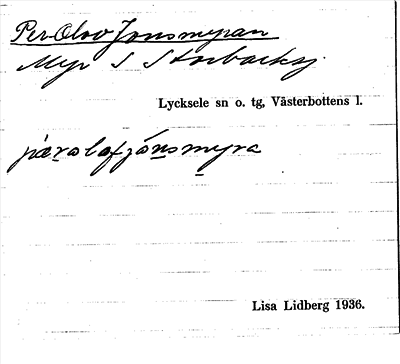 Per-Olov Jonsmyran
Myr S Storbacksj.
Lycksele sn o. tg, Västerbottens l.
pärolofjónsmyra
Lisa Lidberg 1936.